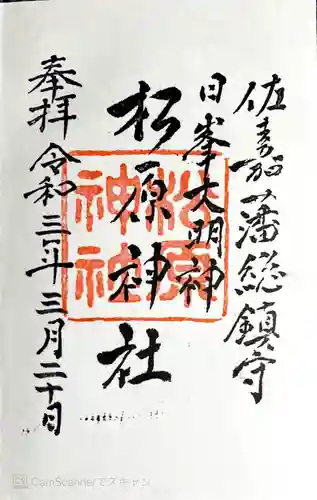 佐嘉藩総鎮守
日峯大明神
松原神社
奉拝 令和三年三月二十日
松原
神社
CamScannerでスキャン